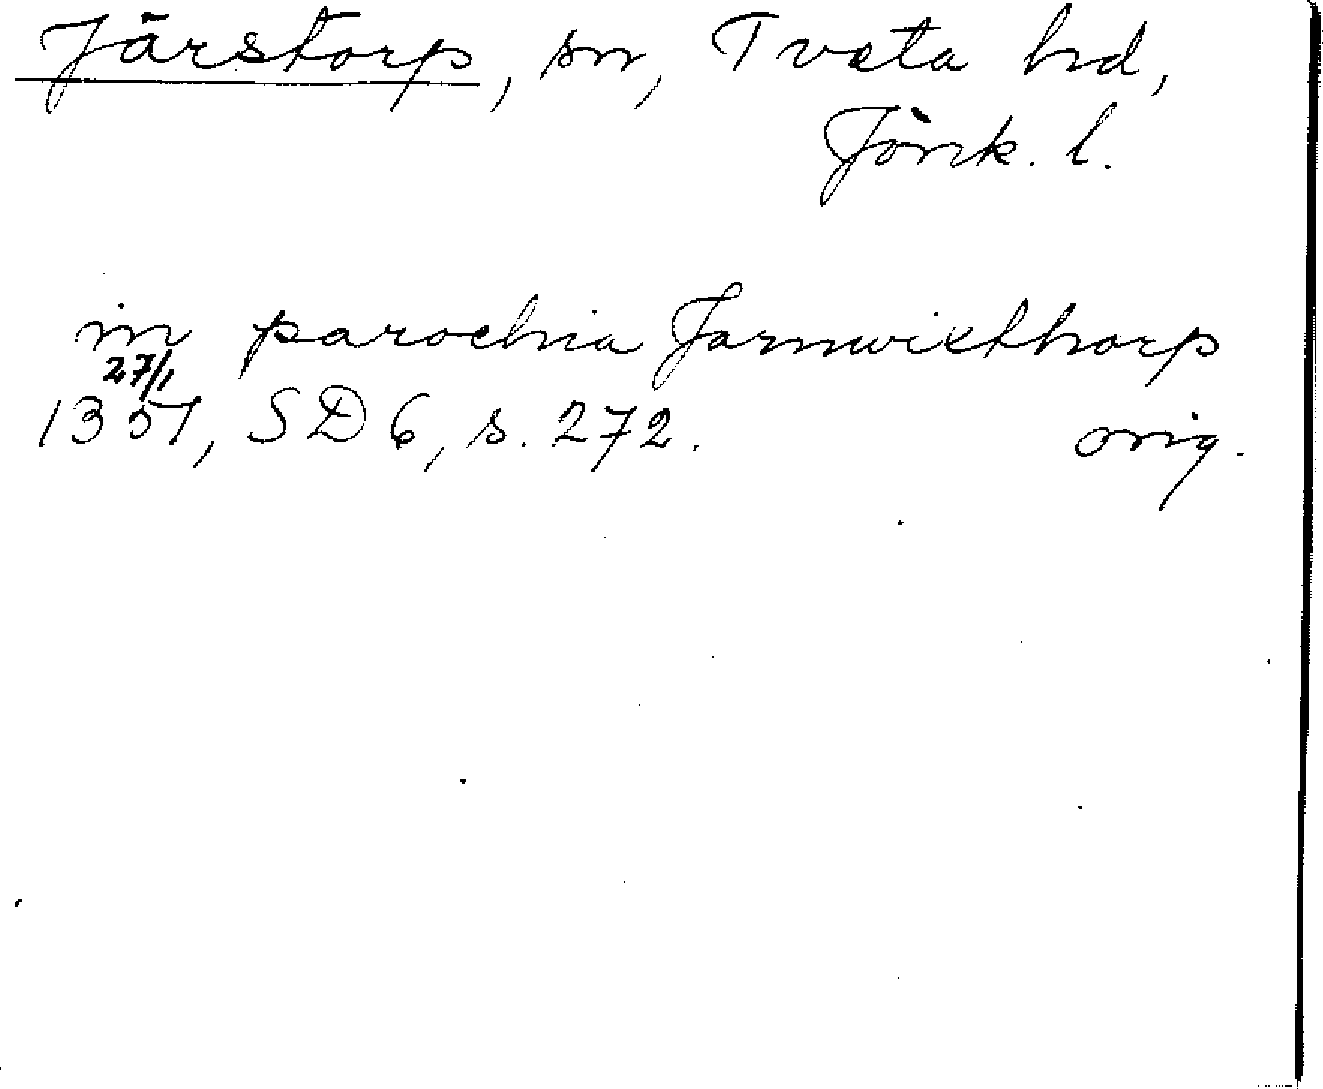 Järstorp, sn, Tveta hd,
Jönk. l.
in parochia Jarnwiethorp
27/1
1351, SD 6, s. 272. orig.